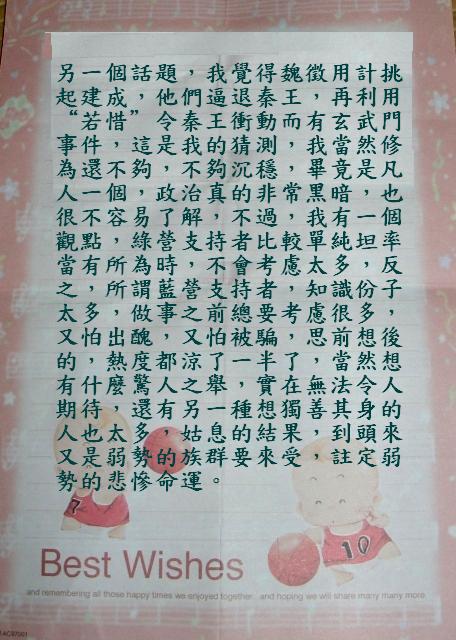 另一個話題，我覺得魏徵用計挑
起建成，他們逼退秦王，再利用
“若惜”令秦王衝動而有玄武門
事件，這是我的猜測，當然是修
為還不夠，不夠沉穩，畢竟是凡
人一個，政治真的非常黑暗，也
很不容易了解，不過，我有一個
觀點，綠營支持者比較單純，坦率
當有所為時，不會考慮太多，反
之，所謂藍營支持者，知識份子，
太多，做事之前總要考慮很多，
又怕出醜，又怕被騙，思前想後
的，熱度都涼了一半了，當然想
有什麼驚人之舉，實在無法令人
期待，還有另一種想獨善其身的
人也太多，姑息的結果，到頭來
又是弱勢族群要來受，註定弱
勢的悲慘的命運。
7
10
Best Wishes
and remembering all those happy times we enjoyed together and hoping we will share many many more